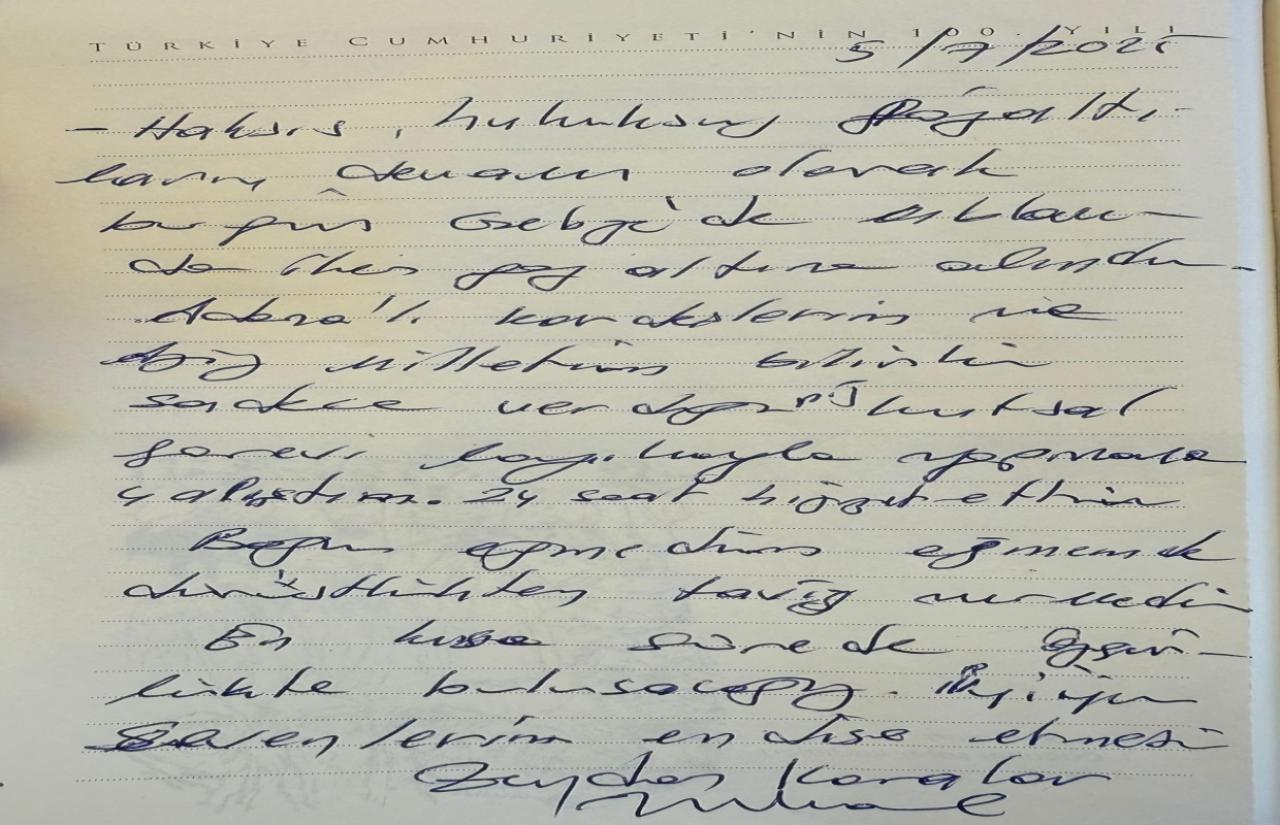 TÜRKİYE CUMHURİYETİ'NİN 100. YILI
5/7/2025
- Haksız, hukuksuz gözaltı-
ların devamı olarak
bugün Gebze'de
da ben göz altına alındım.
Adana'lı kardeşlerim ve
aziz milletim bilsin ki
sadece verdiğiniz kutsal
görevi layıkıyla yapmaya
çalıştım. 24 saat hizmet ettim
Boyun eğmedim eğmem de
dürüstlükten taviz vermedim
En kısa sürede özgür-
lükte buluşacağız. İyiyim
Sevenlerim endişe etmesin
Zeydan Karalar